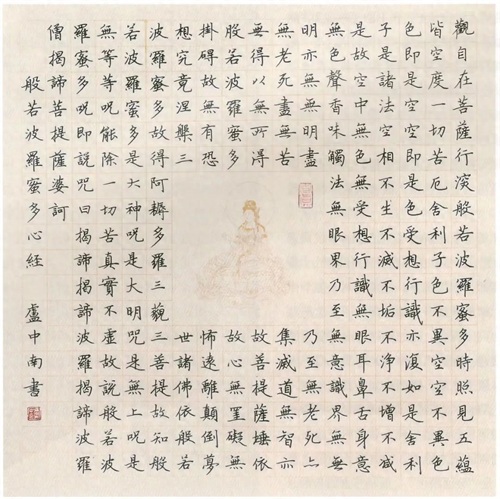 觀自在菩薩行深般若波羅蜜多時照見五蘊
皆空度一切苦厄舍利子色不異空空不異色
色即是空空即是色受想行識亦復如是舍利
子是諸法空相不生不滅不垢不淨不增不減
是故空中無色無受想行識無眼耳鼻舌身意
無色聲香味觸法無眼界乃至無意識界無無
明亦無明盡 乃至無老死亦
無老死盡無苦 集滅道無智亦
無得以無所得 故菩提薩埵依
般若波羅蜜多 故心無罣礙無
掛碍故無有恐 怖遠離顛倒夢
想究竟涅槃三 世諸佛依般若
波羅蜜多故得阿耨多羅三藐三菩提故知般
若波羅蜜多是大神咒是大明咒是無上咒是
無等等咒能除一切苦真實不虛故說般若波
羅蜜多咒即說咒曰揭諦揭諦波羅揭諦波羅
僧揭諦菩提薩婆訶
般若波羅蜜多心經 盧中南書